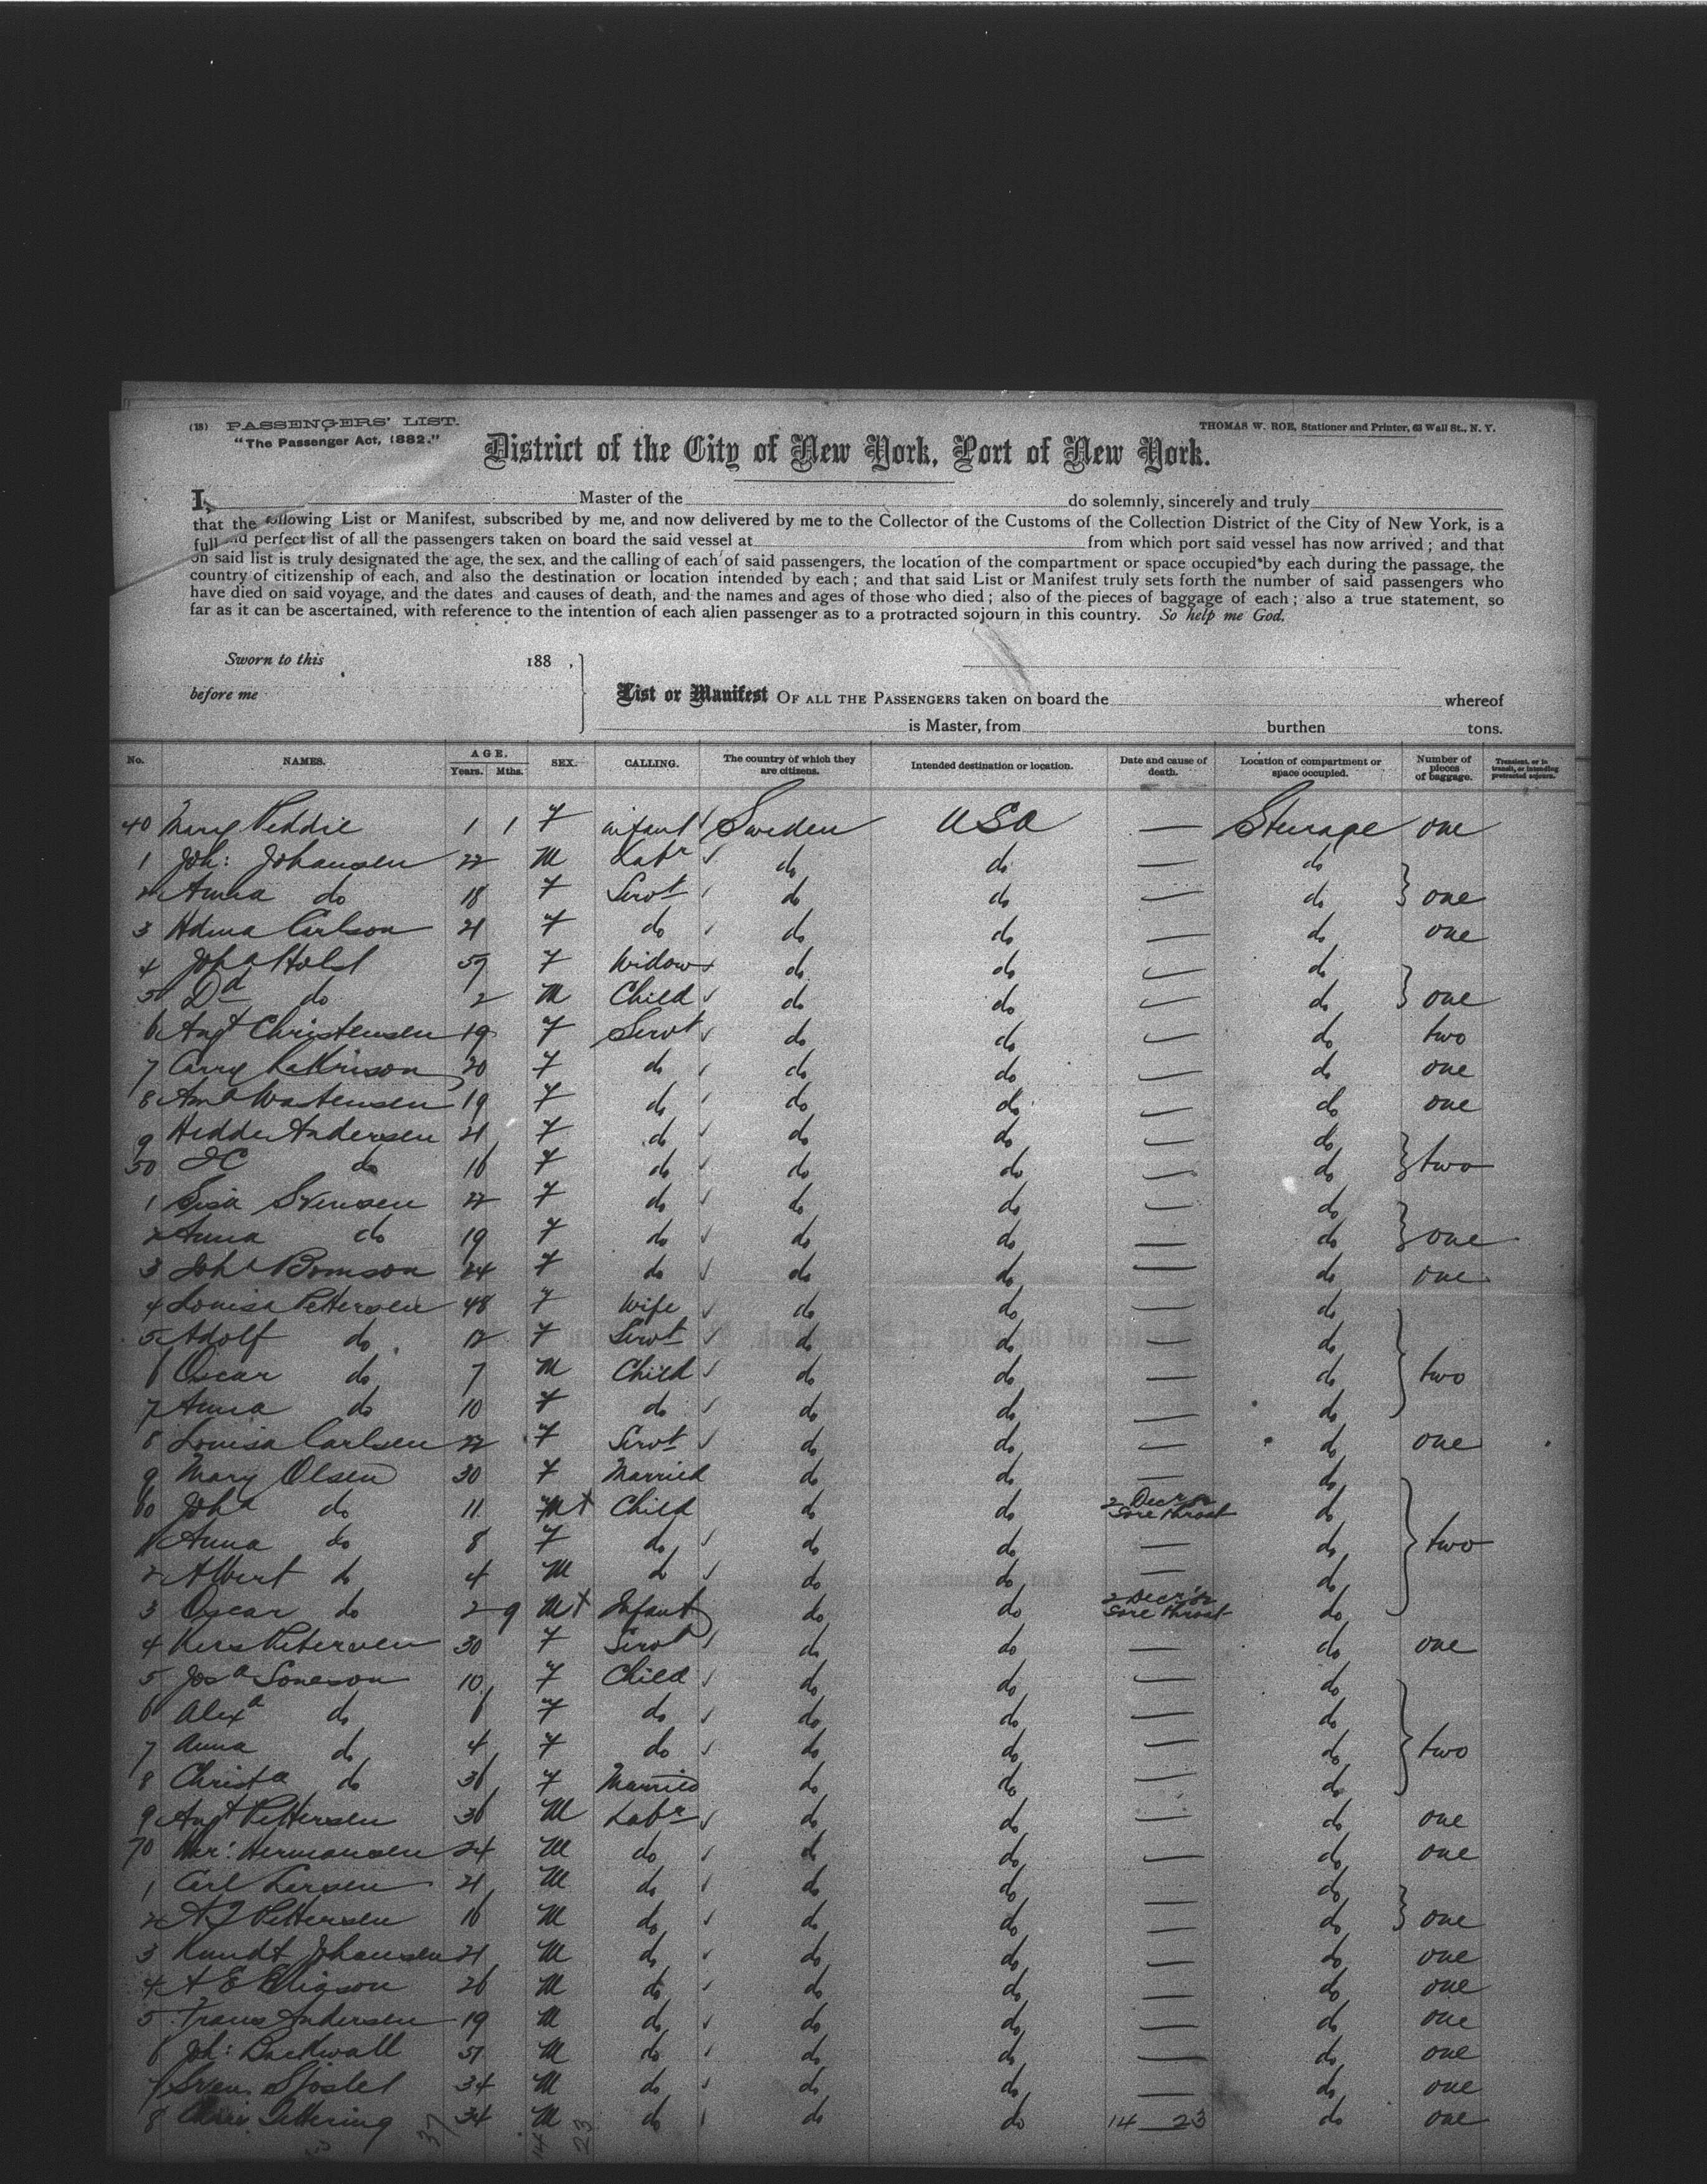 (18) PASSENGERS' LIST.
"The Passenger Act, 1882."
THOMAS W. ROE, Stationer and Printer, 63 Wall St., N. Y.
District of the City of New York, Port of New York.
I, Master of the do solemnly, sincerely and truly
that the following List or Manifest, subscribed by me, and now delivered by me to the Collector of the Customs of the Collection District of the City of New York, is a
full and perfect list of all the passengers taken on board the said vessel at from which port said vessel has now arrived; and that
on said list is truly designated the age, the sex, and the calling of each of said passengers, the location of the compartment or space occupied by each during the passage, the
country of citizenship of each, and also the destination or location intended by each; and that said List or Manifest truly sets forth the number of said passengers who
have died on said voyage, and the dates and causes of death, and the names and ages of those who died; also of the pieces of baggage of each; also a true statement, so
far as it can be ascertained, with reference to the intention of each alien passenger as to a protracted sojourn in this country. So help me God.
Sworn to this 188 ,
before me
List or Manifest OF ALL THE PASSENGERS taken on board the whereof
is Master, from burthen tons.
No. NAMES. AGE. Years. Mths. SEX. CALLING. The country of which they are citizens. Intended destination or location. Date and cause of death. Location of compartment or space occupied. Number of pieces of baggage. Transient, or in transit, or intending protracted sojourn.
40 Mary Peddie 1 1 F infant Sweden USA — Sturage one
1 Joh: Johansen 22 M Labr do do — do
2 Anna do 18 F Servt do do — do one
3 Adina Carlson 21 F do do do — do one
4 Joha Holst 59 F Widow do do — do
5 Dd do 2 M Child do do — do one
6 Augt Christensen 19 F Servt do do — do two
7 Carry 20 F do do do — do one
8 Ama Wastensen 19 F do do do — do one
9 Hedda Andersen 21 F do do do — do
50 JC do 16 F do do do — do two
1 Lisa Svensen 22 F do do do — do
2 Anna do 19 F do do do — do one
3 Joha Bomson 24 F do do do — do one
4 Louisa Pettersen 48 F Wife do do — do
5 Adolf do 12 F Servt do do — do
6 Oscar do 7 M Child do do — do two
7 Anna do 10 F do do do — do
8 Louisa Carlsen 22 F Servt do do — do one
9 Mary Olsen 30 F Married do do — do
60 Joha do 11 M+ Child do do 2 Decr Sore throat do
1 Anna do 8 F do do do — do two
2 Albert do 4 M do do do — do
3 Oscar do 2 9 M+ Infant do do 2 Decr Sore throat do
4 Kers Petersen 30 F Servt do do — do one
5 Josa Soneson 10 F Child do do — do
6 Alexa do 6 F do do do — do
7 Anna do 4 F do do do — do two
8 Christa do 36 F Married do do — do
9 Augt Pettersen 36 M Labr do do — do one
70 Her: Hermansen 24 M do do do — do one
1 Carl Larsen 21 M do do do — do
2 A J Pettersen 16 M do do do — do one
3 Kundt Johansen 21 M do do do — do one
4 A E 26 M do do do — do one
5 Frans Andersen 19 M do do do — do one
6 Joh: Backwall 51 M do do do — do one
7 Sven Sjostet 34 M do do do — do one
8 Tettering 34 M do do do 14 — 23 do one
37 14 23